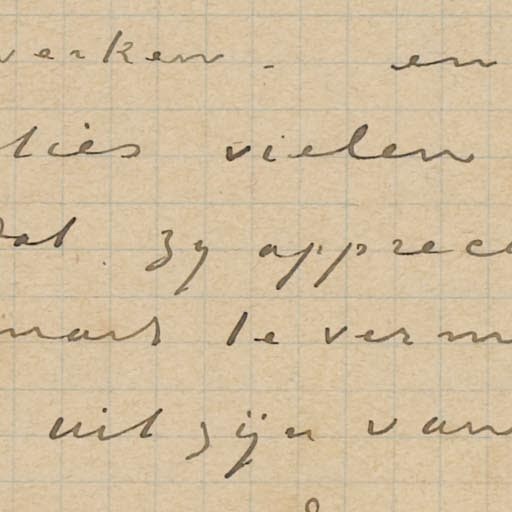 werken - en
ties vielen
dat zy apprec
te verm
uit zijn van